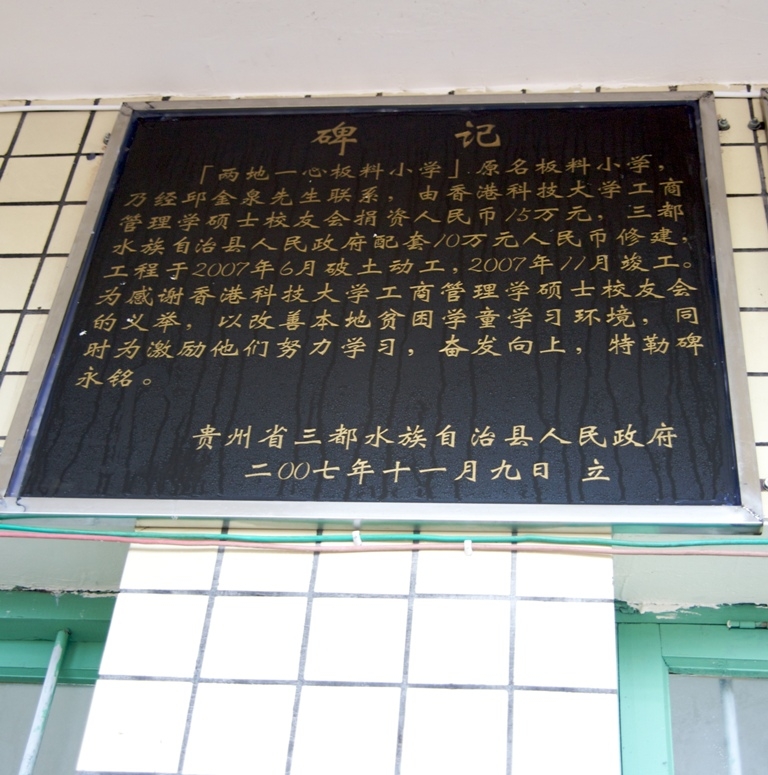 碑 记
「两地一心板料小学」原名板料小学，
乃经邱金泉先生联系，由香港科技大学工商
管理学硕士校友会捐资人民币15万元，三都
水族自治县人民政府配套10万元人民币修建，
工程于2007年6月破土动工，2007年11月竣工。
为感谢香港科技大学工商管理学硕士校友会
的义举，以改善本地贫困学童学习环境，同
时为激励他们努力学习，奋发向上，特勒碑
永铭。
贵州省三都水族自治县人民政府
二00七年十一月九日 立